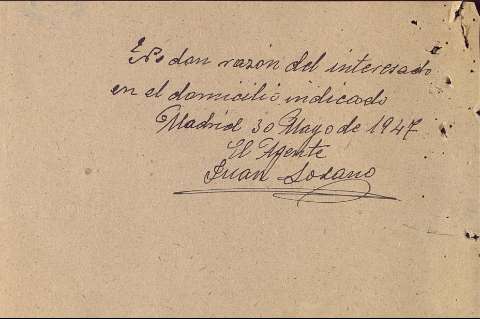 No dan razón del interesado
en el domicilio indicado
Madrid 30 Mayo de 1947
El Agente
Juan Lozano